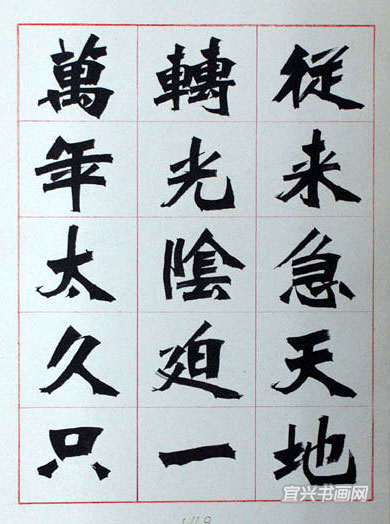 從来急天地
轉光陰廹一
萬年太久只
178
宜兴书画网